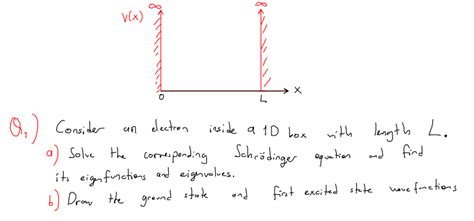 ∞ ∞
V(x)
0 L x
Q1) Consider an electron inside a 1D box with length L.
a) Solve the corresponding Schrödinger equation and find
its eigenfunctions and eigenvalues.
b) Draw the ground state and first excited state wavefunctions